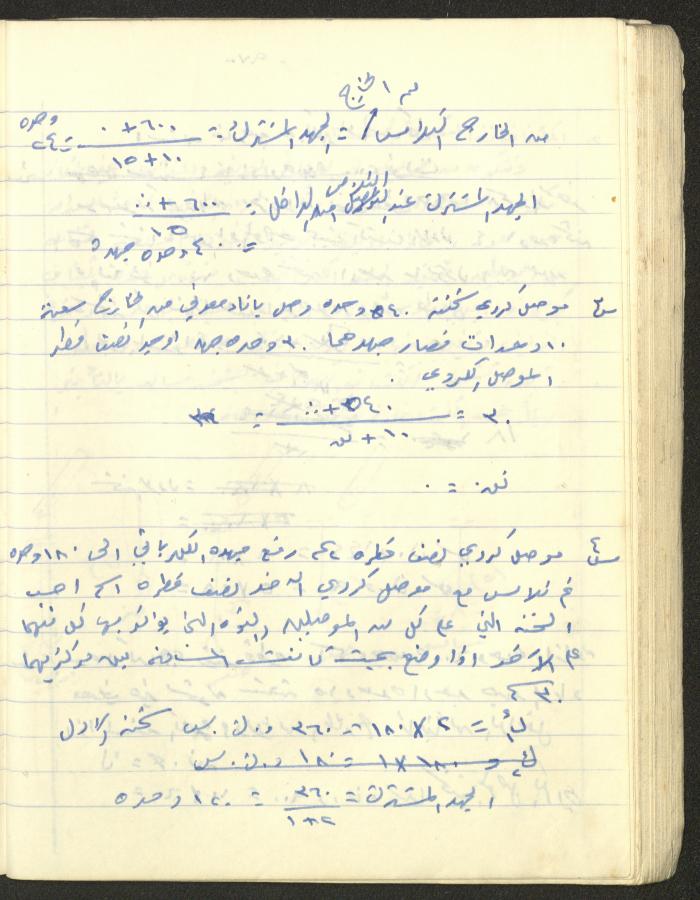 من الخارج
من الخارج التلامس = الجهد المشترك = ٦٠٠ + ٠ / ١٠ + ١٥ = ٢٤ وحده
الجهد المشترك عند التلامس من الداخل = ٦٠٠ + ٠ / ١٥
= ٤٠ وحده جهد
س٣ موصل كروي شحنته ٥٤٠ وحده وصل باناء معدني من الخارج سعته
١٠ وحدات فصار جهدهما ٣٠ وحده جهد اوجد نصف قطر
الموصل الكروي .
٣٠ = ٥٤٠ + ٠ / ١٠ + نق =
نق =
س٤ موصل كروي نصف قطره ٢ سم رفع جهده الكهربائي الى ١٨٠ وحده
ثم تلامس مع موصل كروي آخر نصف قطره ١ سم احسب
الشحنة التي على كل من الموصلين والقوة التي يؤثر بها كل منهما
على الآخر اذا وضع بحيث كانت المسافة بين مركزيهما
٣٠ سم
٢ × ١٨٠ = ٣٦٠ و.ك.س شحنة الاول
١ × ١٨٠ = ١٨٠ و.ك.س
الجهد المشترك = ٣٦٠ / ٢ + ١ = ١٢٠ وحده